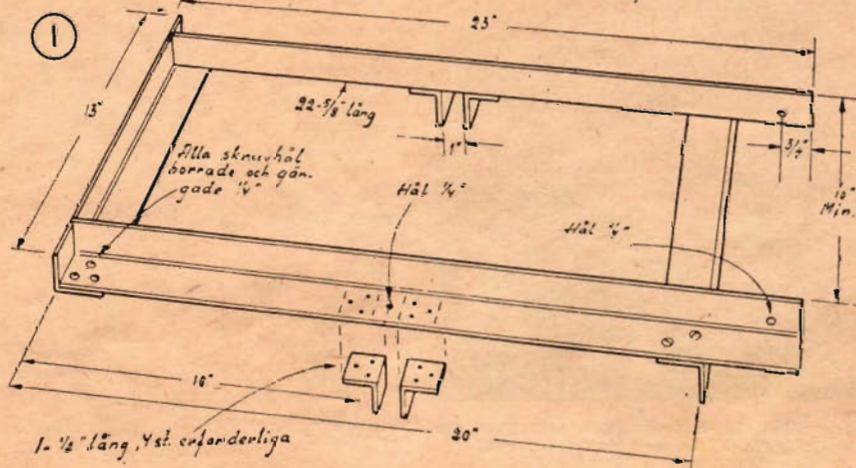 1
23"
13"
22-5/8" lång
1"
3/4"
10"
Min.
Alla skruvhål
borrade och gän-
gade 1/4"
Hål 1/4"
Hål
16"
20"
1-1/2" lång, 4 st. erforderliga